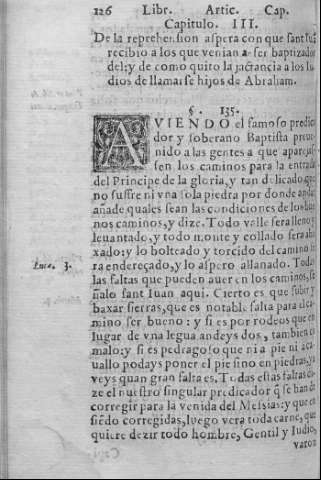 126 Libr. Artic. Cap.
Capitulo. III.
De la reprehension aspera con que sant Iuã
recibio a los que venian a ser baptizados
del: y de como quito la jactancia a los Iu
dios de llamarse hijos de Abraham.
§. 135.
AVIENDO el famoso predica
dor y soberano Baptista preue
nido a las gentes a que aparejas
sen los caminos para la entrada
del Principe de la gloria, y tan delicado, que
no suffre ni vna sola piedra por donde anda,
añade quales sean las condiciones de los bue
nos caminos, y dize. Todo valle sera lleno y
leuantado, y todo monte y collado sera aba
xado: y lo bolteado y torcido del camino se
ra endereçado, y lo aspero allanado. Todas
Luca. 3.
las faltas que pueden auer en los caminos, se
ñalo sant Iuan aqui. Cierto es que subir y
baxar sierras, que es notable falta para el ca
mino ser bueno: y si es por rodeos que en
lugar de vna legua andeys dos, tambien es
malo: y si es pedragoso que ni a pie ni a ca
uallo podays poner el pie sino en piedras, ya
veys quan gran falta es. Todas estas faltas di
ze el nuestro singular predicador q̃ se han de
corregir para la venida del Messias: y que en
siẽdo corregidas, luego vera toda carne, que
quiere dezir todo hombre, Gentil y Iudio,
varon